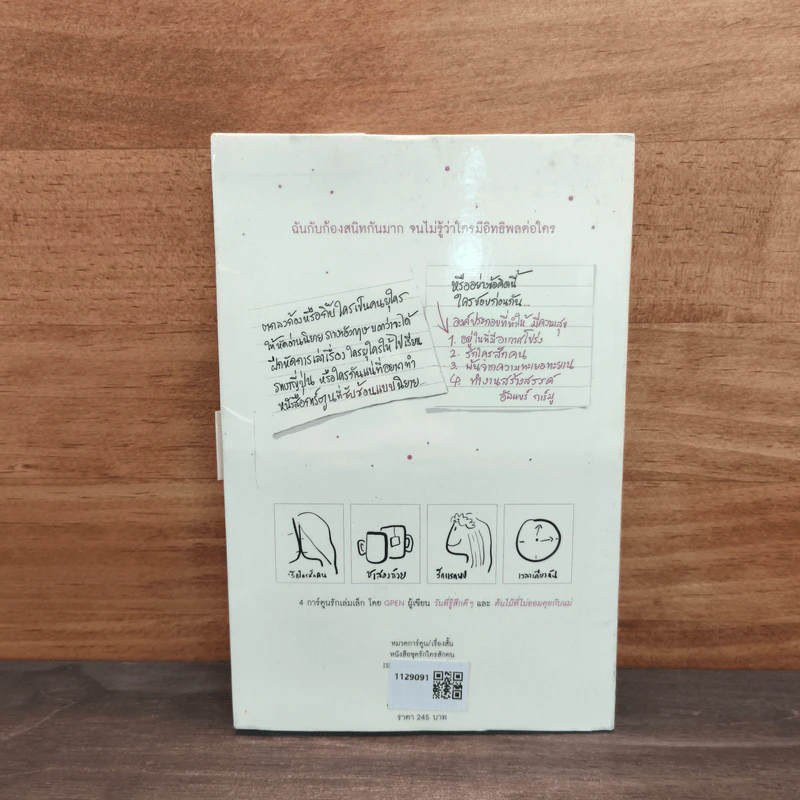 ฉันกับก้องสนิทกันมาก จนไม่รู้ว่าใครมีอิทธิพลต่อใคร
ตกลงก้องหรือกิ๊บ ใครเป็นคนยุใคร
ให้หัดอ่านนิยายภาษาอังกฤษ บอกว่าจะได้
ฝึกหัดการเล่าเรื่อง ใครยุใครให้ไปเรียน
ภาษาญี่ปุ่น หรือใครกันแน่ที่อยากทำ
หนังสือการ์ตูนที่ซับซ้อนแบบนิยาย...
หรืออย่างข้อคิดนี้
ใครชอบก่อนกัน...
องค์ประกอบที่ทำให้ มีความสุข
1. อยู่ในที่มีอากาศโปร่ง
2. รักใครสักคน
3. พ้นจากความทะเยอทะยาน
4. ทำงานสร้างสรรค์
อัลแบร์ กามู
รักใครสักคน
ชาสองถ้วย
รักแรกพบ
เวลาเดียวกัน
4 การ์ตูนรักเล่มเล็ก โดย GPEN ผู้เขียน วันที่รู้สึกดีๆ และ ต้นไม้ที่ไม่ยอมคุยกับแม่
หมวดการ์ตูน/เรื่องสั้น
หนังสือชุดรักใครสักคน
1129091
ราคา 245 บาท